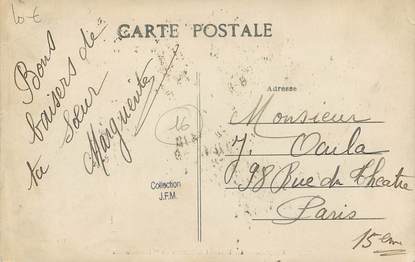 10-€
CARTE POSTALE
Bons
baisers de
ta Sœur
Marguerite
16
Collection
J.F.M.
Adresse
Monsieur
J. Ocula
98 Rue du Theatre
Paris
15eme